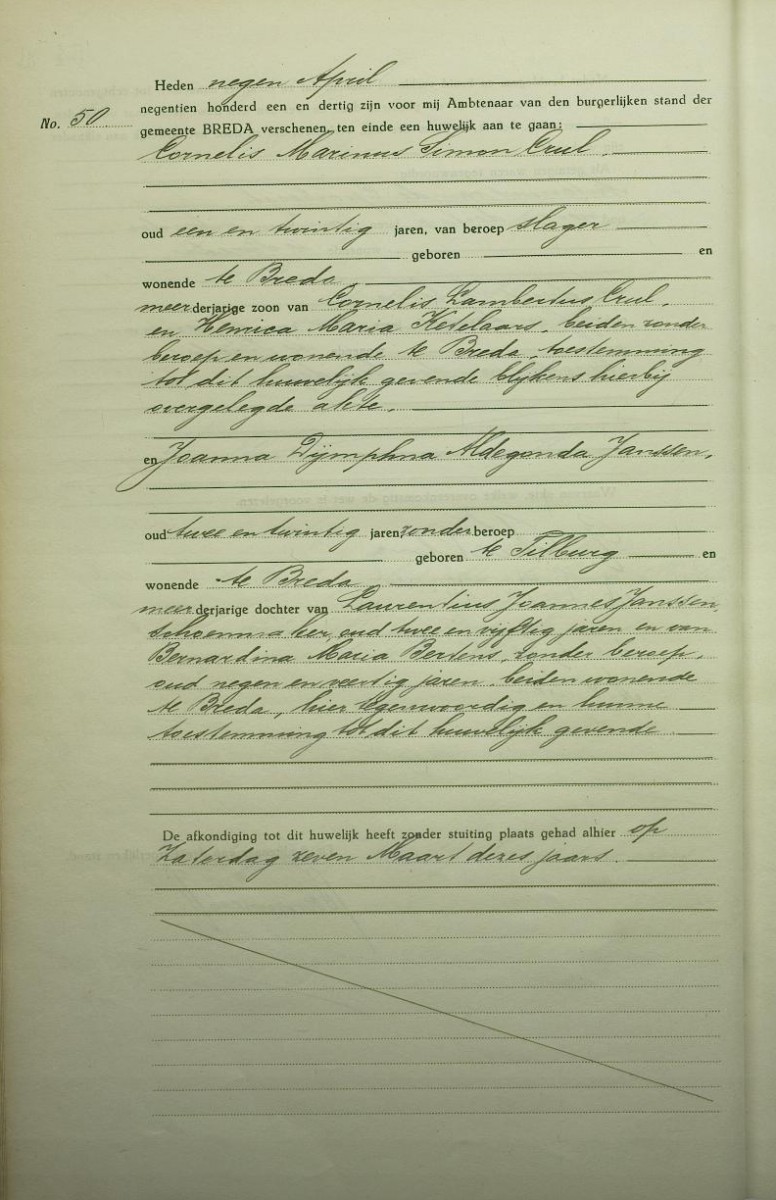 Heden negen April
negentien honderd een en dertig zijn voor mij Ambtenaar van den burgerlijken stand der
No. 50
gemeente BREDA verschenen, ten einde een huwelijk aan te gaan:
Cornelis Marinus Simon Crul.
oud een en twintig jaren, van beroep slager
geboren en
wonende te Breda
meerderjarige zoon van Cornelis Lambertus Crul,
en Henrica Maria Ketelaars, beiden zonder
beroep en wonende te Breda, toestemming
tot dit huwelijk gevende blijkens hierbij
overgelegde akte.
en Joanna Dijmphna Aldegonda Janssen,
oud twee en twintig jaren, zonder beroep
geboren te Tilburg en
wonende te Breda
meerderjarige dochter van Laurentius Joannes Janssen,
schoenmaker, oud twee en vijftig jaren en van
Bernardina Maria Bertens, zonder beroep,
oud negen en veertig jaren, beiden wonende
te Breda, hier tegenwoordig en hunne
toestemming tot dit huwelijk gevende.
De afkondiging tot dit huwelijk heeft zonder stuiting plaats gehad alhier op
Zaterdag zeven Maart dezes jaars.